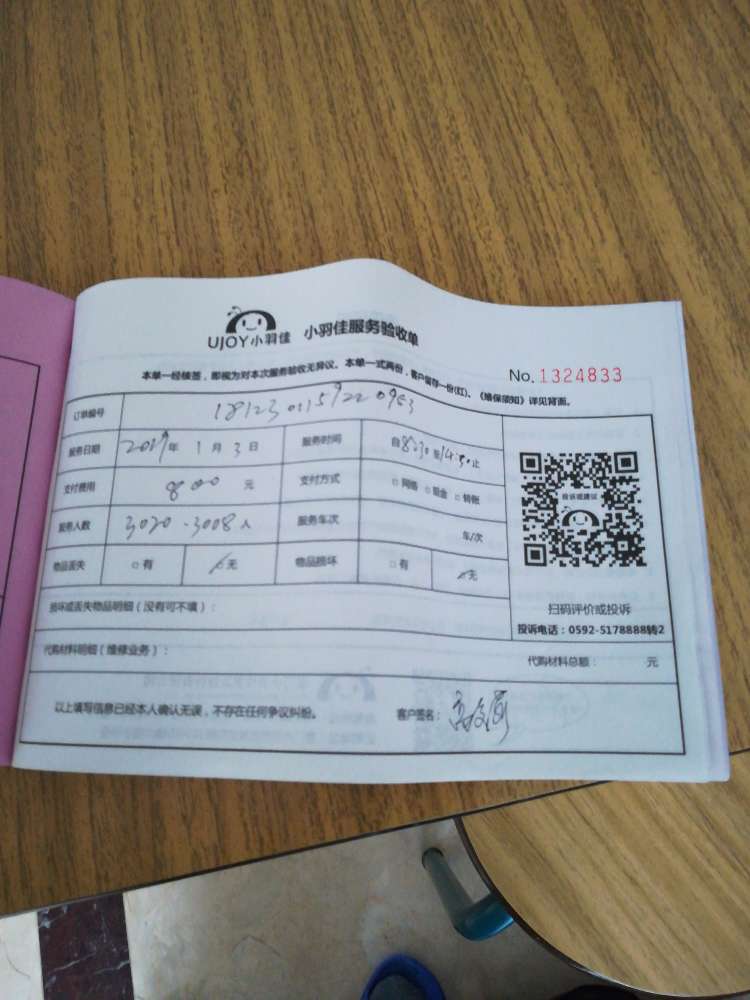 UJOY小羽佳 小羽佳服务验收单
本单一经核签，即视为对本次服务验收无异议。本单一式两份，客户留存一份(红)。《维保须知》详见背面。
No. 1324833
订单编号
服务日期 2019年 1月 3日 服务时间 自8:30至14:30止
支付费用 800 元 支付方式 □网络 □现金 □转账
服务人数 3020-3008人 服务车次 车/次
物品丢失 □有 □无 物品损坏 □有 □无
损坏或丢失物品明细（没有可不填）：
投诉或建议
扫码评价或投诉
投诉电话：0592-5178888转2
代购材料明细（维修业务）： 代购材料总额： 元
以上填写信息已经本人确认无误，不存在任何争议纠纷。 客户签名：